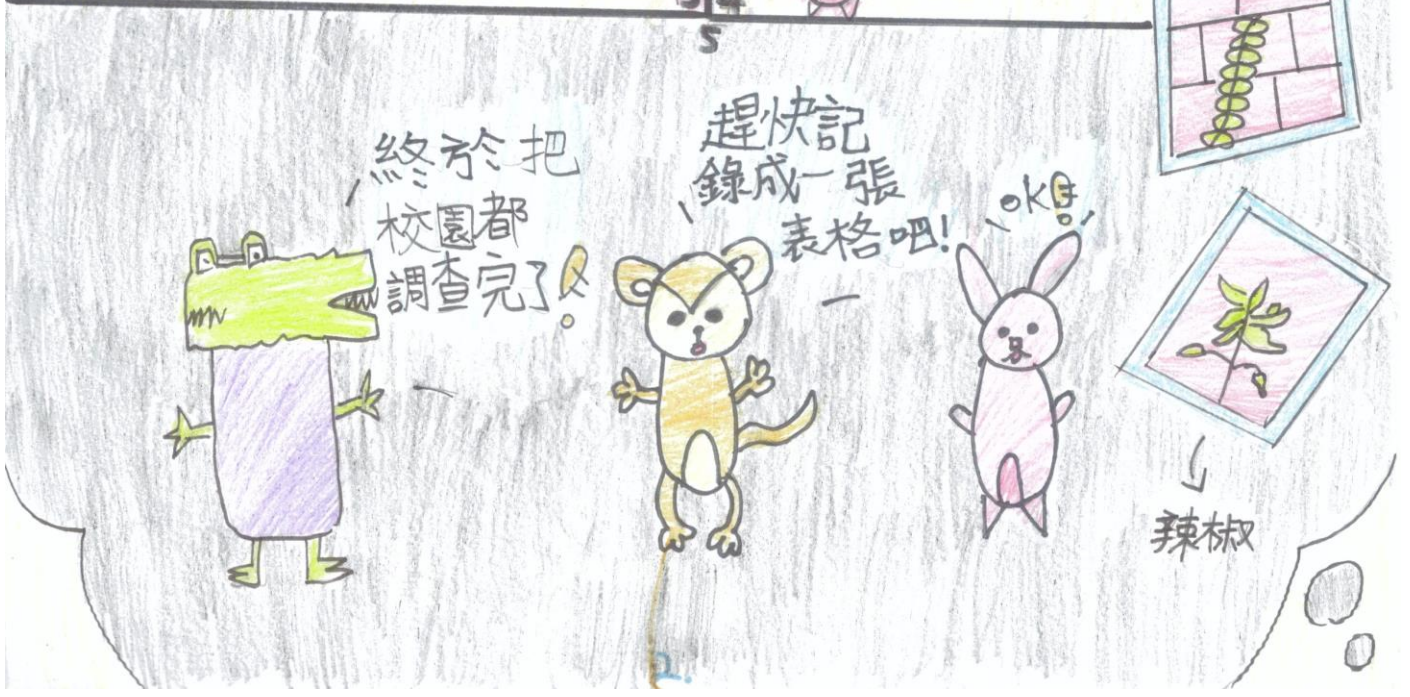 5
終於把
校園都
調查完了!
趕快記
錄成一張
表格吧!
ok!
辣椒
2.